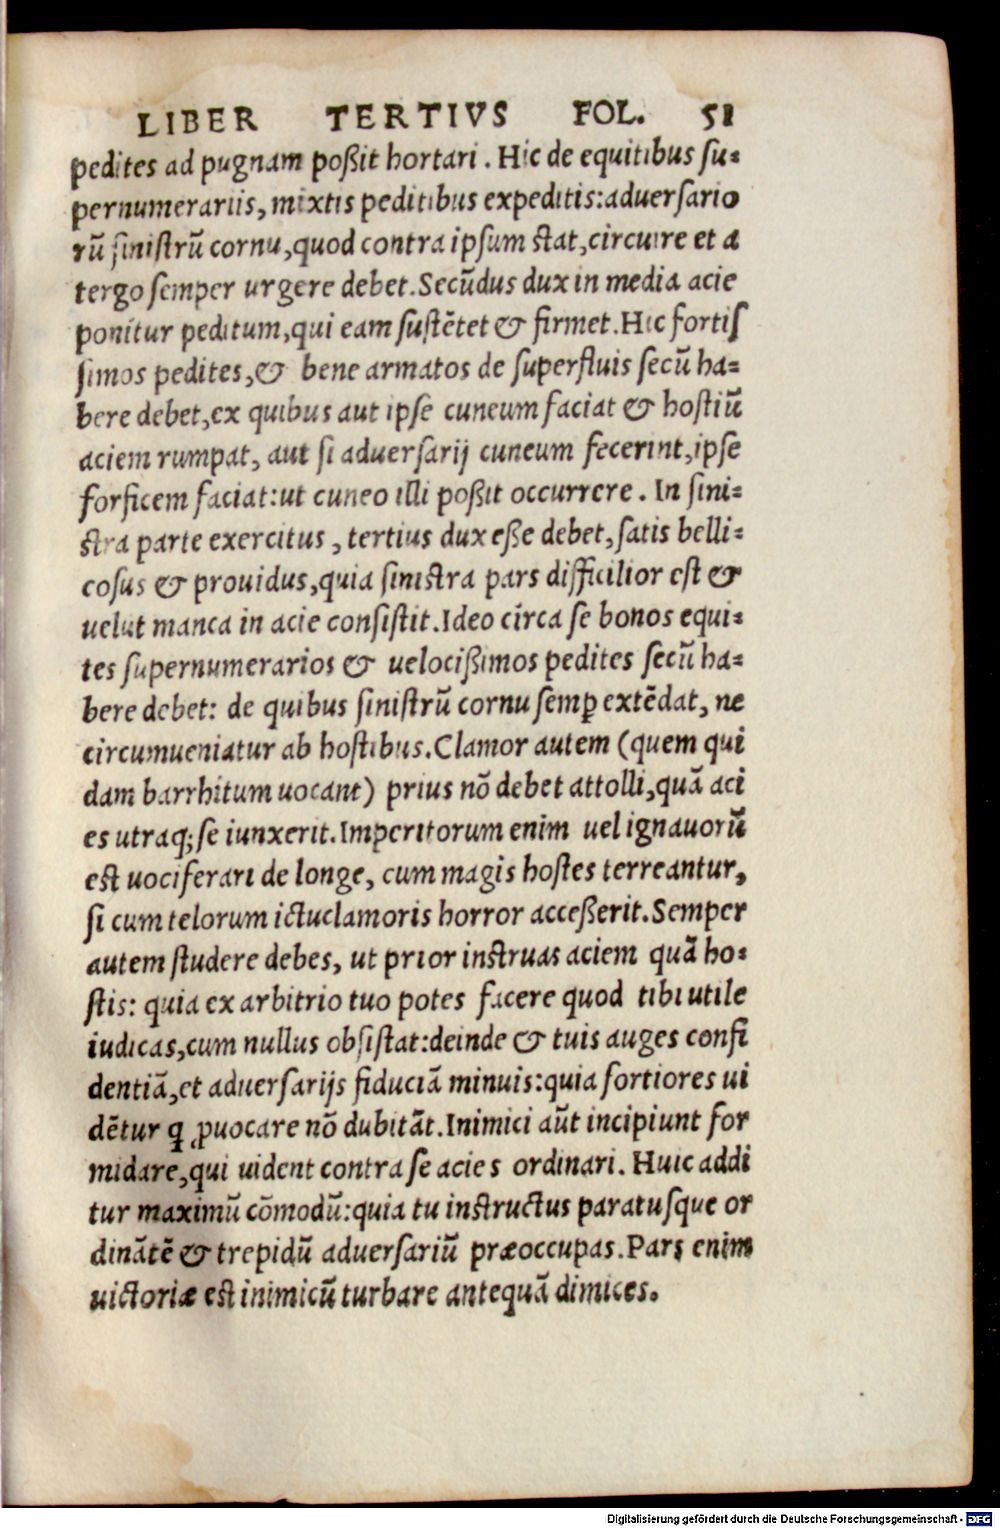 LIBER TERTIVS FOL. 51
pedites ad pugnam poßit hortari. Hic de equitibus ſu-
pernumerariis, mixtis peditibus expeditis: aduerſario
rũ ſiniſtrũ cornu, quod contra ipſum ſtat, circuire et a
tergo ſemper urgere debet. Secũdus dux in media acie
ponitur peditum, qui eam ſuſtẽtet & firmet. Hic fortiſ
ſimos pedites, & bene armatos de superfluis ſecũ ha-
bere debet, ex quibus aut ipſe cuneum faciat & hoſtiũ
aciem rumpat, aut ſi aduerſarij cuneum fecerint, ipſe
forficem faciat: ut cuneo illi poßit occurrere. In ſini-
ſtra parte exercitus, tertius dux eße debet, ſatis belli-
coſus & prouidus, quia ſiniſtra pars difficilior eſt &
uelut manca in acie conſiſtit. Ideo circa ſe bonos equi-
tes ſupernumerarios & uelocißimos pedites ſecũ ha-
bere debet: de quibus ſiniſtrũ cornu ſemꝑ extẽdat, ne
circumueniatur ab hoſtibus. Clamor autem (quem qui
dam barrhitum uocant) prius nõ debet attolli, quã aci
es utraq; ſe iunxerit. Imperitorum enim uel ignauorũ
eſt uociferari de longe, cum magis hoſtes terreantur,
ſi cum telorum ictu clamoris horror acceßerit. Semper
autem ſtudere debes, ut prior inſtruas aciem quã ho-
ſtis: quia ex arbitrio tuo potes facere quod tibi utile
iudicas, cum nullus obſiſtat: deinde & tuis auges confi
dentiã, et aduerſarijs fiduciã minuis: quia fortiores ui
dẽtur ꝗ ꝓuocare nõ dubitãt. Inimici aũt incipiunt for
midare, qui uident contra ſe acies ordinari. Huic addi
tur maximũ cõmodũ: quia tu inſtructus paratuſque or
dinãtẽ & trepidũ aduerſariũ præoccupas. Pars enim
uictoriæ eſt inimicũ turbare antequã dimices.
Digitalisierung gefördert durch die Deutsche Forschungsgemeinschaft - DFG